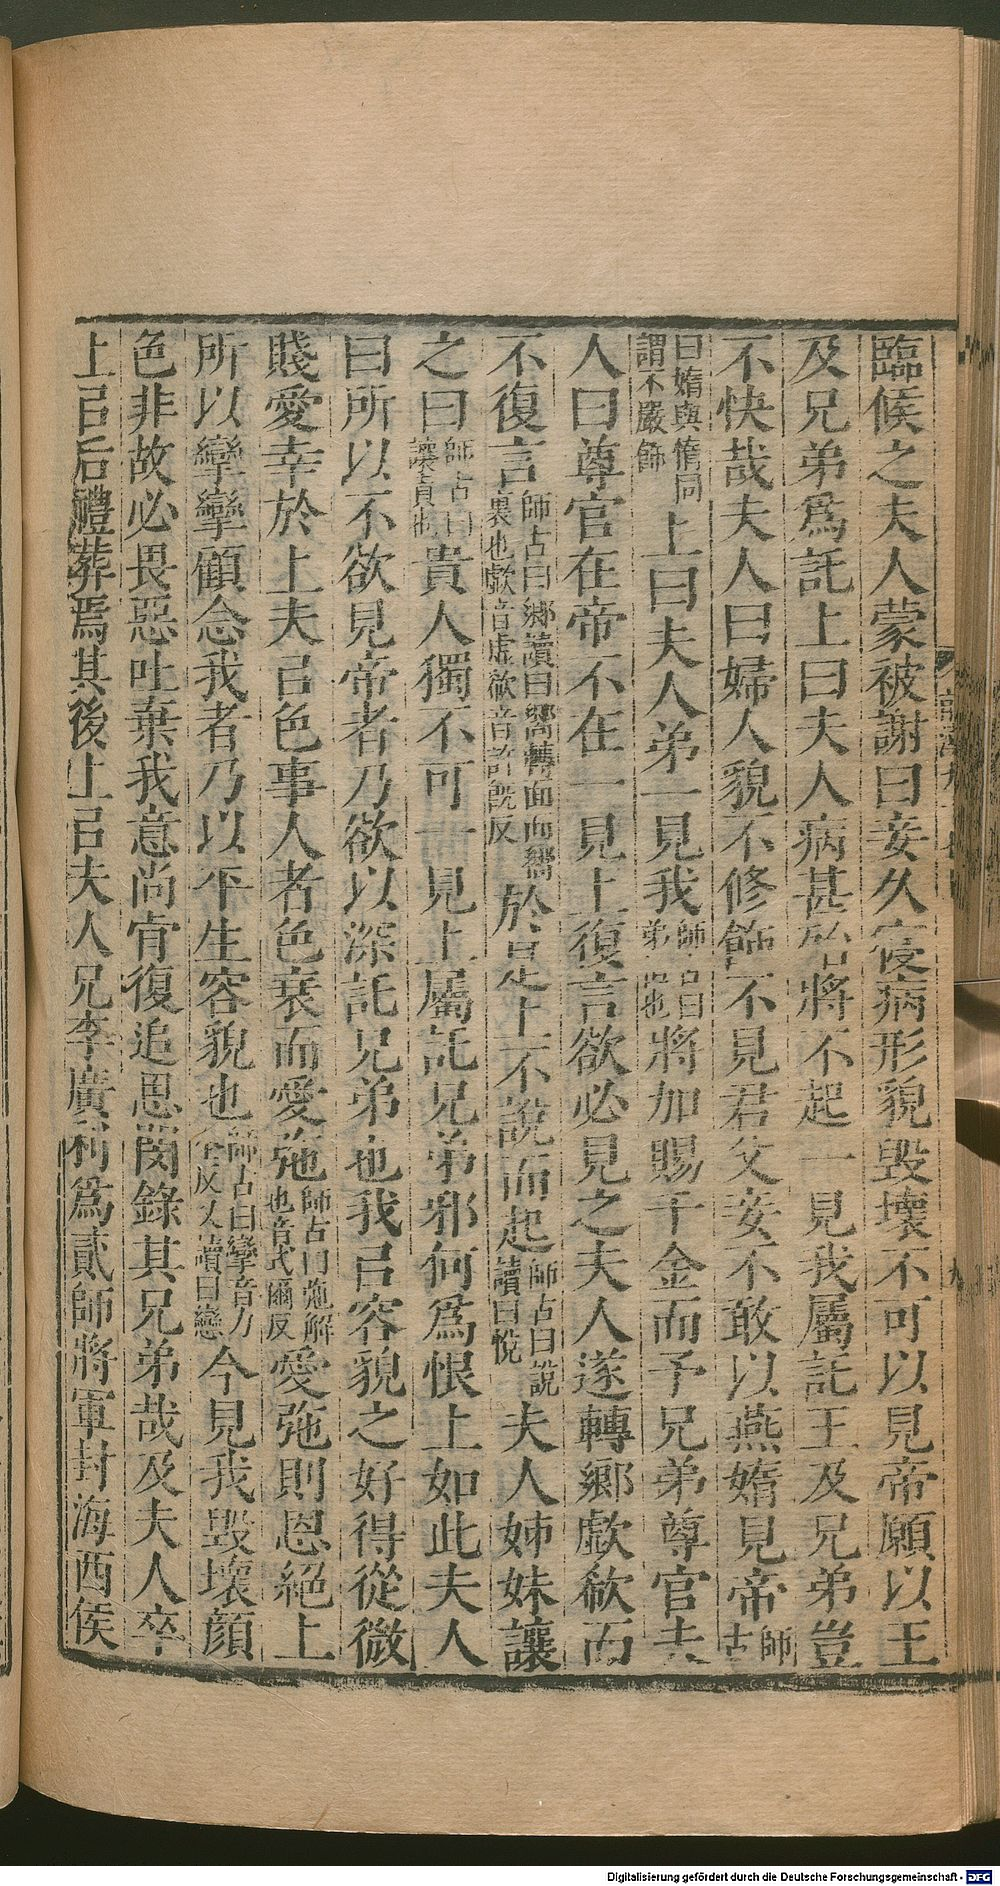 臨候之夫人蒙被謝曰妾久寑病形貌毀壞不可以見帝願以王
及兄弟爲託上曰夫人病甚殆將不起一見我屬託王及兄弟豈
不快哉夫人曰婦人貌不修飾不見君父妾不敢以燕媠見帝師古
曰媠與惰同謂不嚴飾上曰夫人弟一見我師古曰弟但也將加賜千金而予兄弟尊官夫
人曰尊官在帝不在一見上復言欲必見之夫人遂轉鄉歔欷而
不復言師古曰鄉讀曰嚮轉面而嚮裏也歔音虛欷音許旣反於是上不說而起師古曰說讀曰悅夫人姊妹讓
之曰師古曰讓責也貴人獨不可一見上屬託兄弟邪何爲恨上如此夫人
曰所以不欲見帝者乃欲以深託兄弟也我㠯容貌之好得從微
賤愛幸於上夫㠯色事人者色衰而愛弛師古曰弛解也音式爾反愛弛則恩絕上
所以攣攣顧念我者乃以平生容貌也師古曰攣音力全反又讀曰戀今見我毀壞顏
色非故必畏惡吐棄我意尚肯復追思閔錄其兄弟哉及夫人卒
上㠯后禮葬焉其後上㠯夫人兄李廣利爲貳師將軍封海西侯
Digitalisierung gefördert durch die Deutsche Forschungsgemeinschaft - DFG